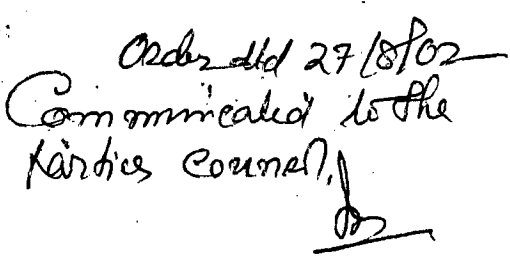 Order dtd 27/8/02
Communicated to the
parties counsel.